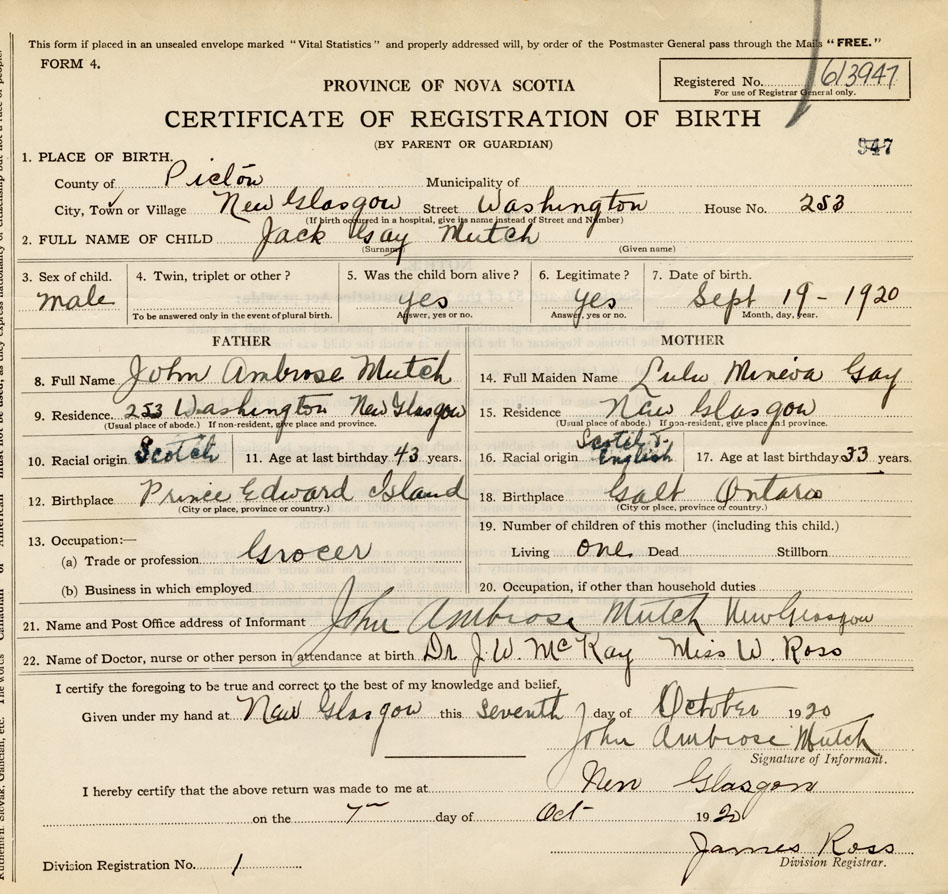 This form if placed in an unsealed envelope marked "Vital Statistics" and properly addressed will, by order of the Postmaster General pass through the Mails "FREE."
FORM 4.
Registered No. 613947
For use of Registrar General only.
PROVINCE OF NOVA SCOTIA
CERTIFICATE OF REGISTRATION OF BIRTH
(BY PARENT OR GUARDIAN)
947
1. PLACE OF BIRTH.
County of Picton Municipality of
City, Town or Village New Glasgow Street Washington House No. 253
(If birth occurred in a hospital, give its name instead of Street and Number)
2. FULL NAME OF CHILD Jack Gay Mutch
(Surname) (Given name)
3. Sex of child. 4. Twin, triplet or other? 5. Was the child born alive? 6. Legitimate? 7. Date of birth.
male yes yes Sept 19 - 1920
To be answered only in the event of plural birth. Answer, yes or no. Answer, yes or no. Month, day, year.
FATHER MOTHER
8. Full Name John Ambrose Mutch 14. Full Maiden Name Lulu Mineva Gay
9. Residence. 253 Washington New Glasgow 15. Residence New Glasgow
(Usual place of abode.) If non-resident, give place and province. (Usual place of abode.) If non-resident, give place and province.
10. Racial origin Scotch 11. Age at last birthday 43 years. 16. Racial origin Scotch & English 17. Age at last birthday 33 years.
12. Birthplace Prince Edward Island 18. Birthplace Galt Ontario
(City or place, province or country.) (City or place, province or country.)
19. Number of children of this mother (including this child.)
13. Occupation:—
(a) Trade or profession Grocer Living one Dead Stillborn
(b) Business in which employed 20. Occupation, if other than household duties
21. Name and Post Office address of Informant John Ambrose Mutch New Glasgow
22. Name of Doctor, nurse or other person in attendance at birth Dr J. W. McKay Miss W. Ross
I certify the foregoing to be true and correct to the best of my knowledge and belief,
Given under my hand at New Glasgow this seventh day of October 1920
John Ambrose Mutch
Signature of Informant.
I hereby certify that the above return was made to me at New Glasgow
on the 7 day of Oct 1920
James Ross
Division Registrar.
Division Registration No. 1